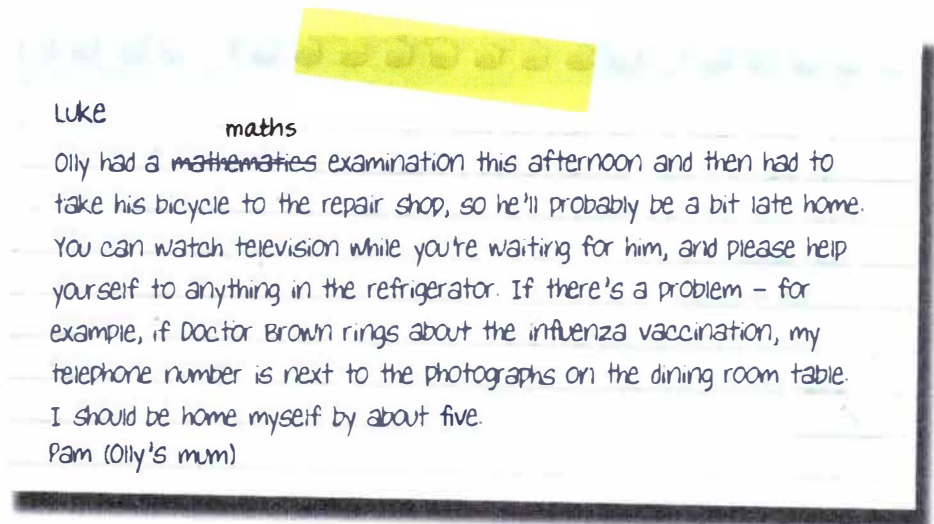 Luke
maths
Olly had a mathematics examination this afternoon and then had to
take his bicycle to the repair shop, so he'll probably be a bit late home.
You can watch television while you're waiting for him, and please help
yourself to anything in the refrigerator. If there's a problem – for
example, if Doctor Brown rings about the influenza vaccination, my
telephone number is next to the photographs on the dining room table.
I should be home myself by about five.
Pam (Olly's mum)